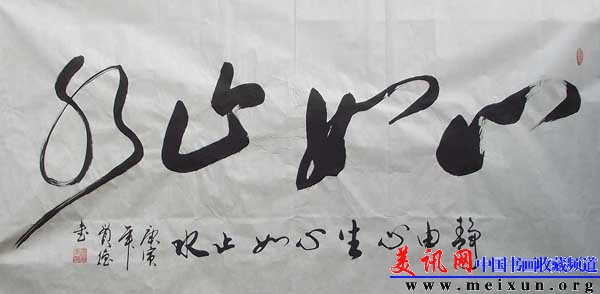 心如止水
静由心生心如止水
庚寅
年
书
美讯网 中国书画收藏频道
www.meixun.org